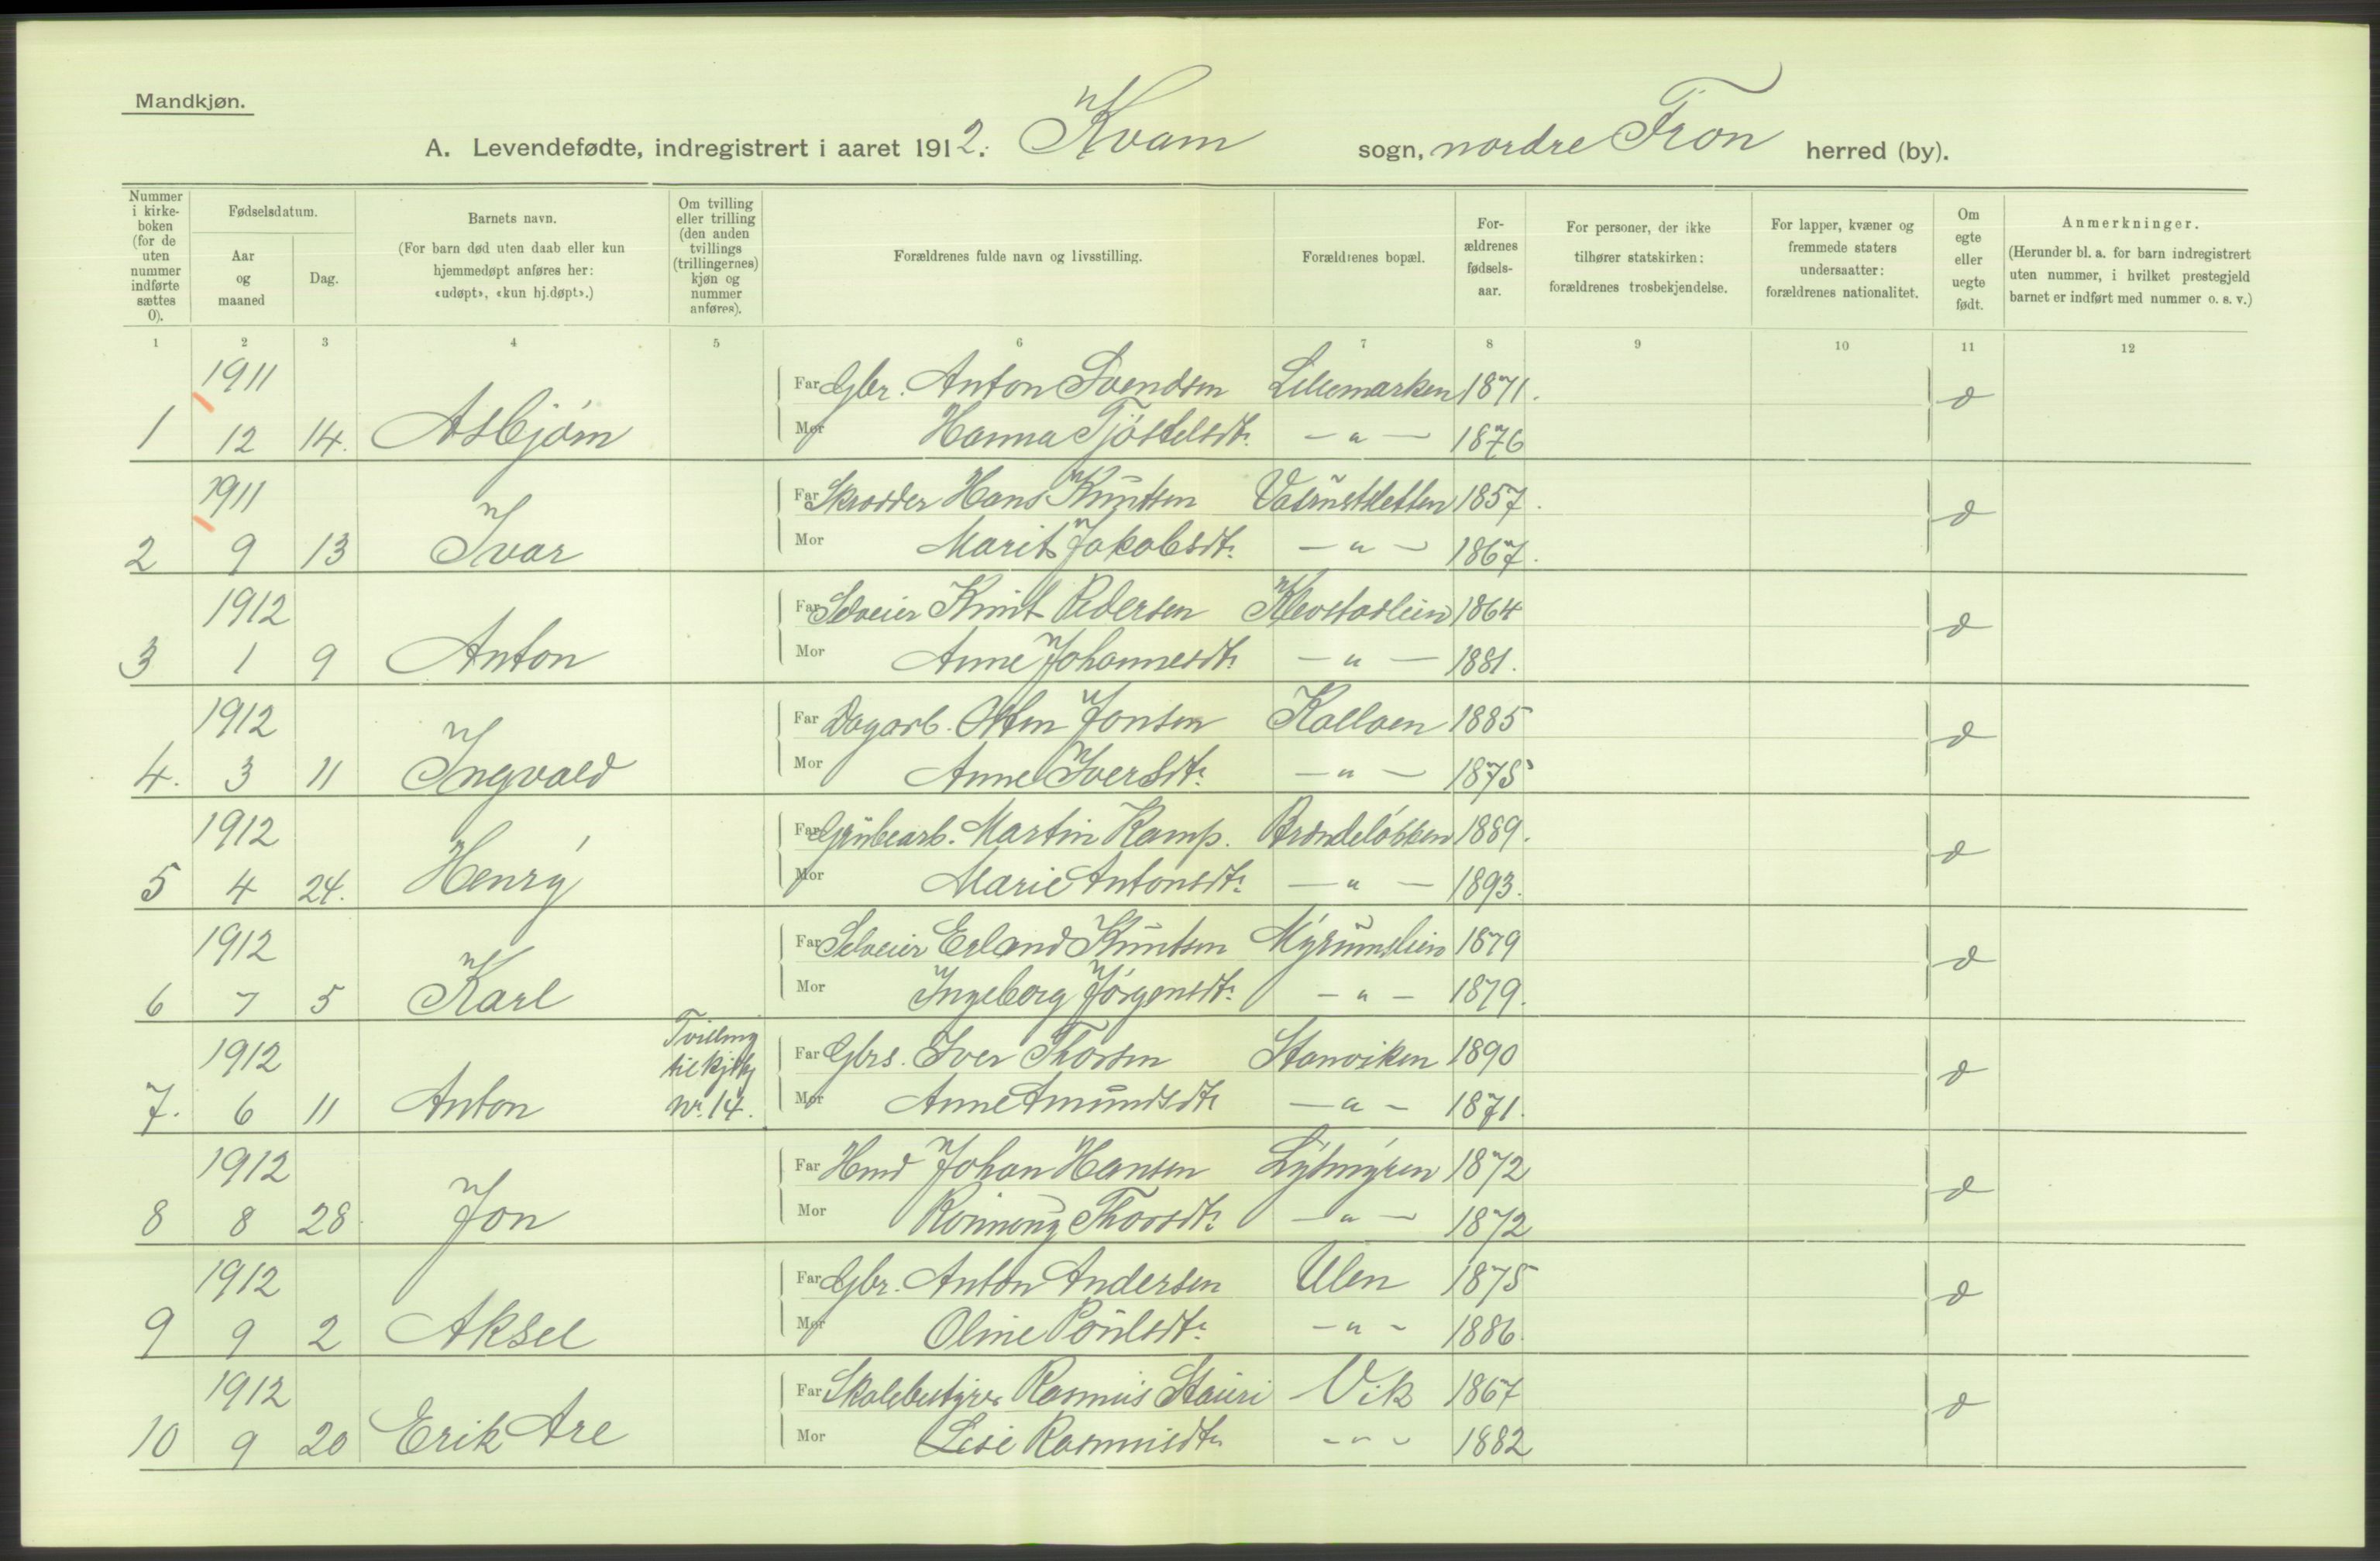 Mandkjøn.
A. Levendefødte, indregistrert i aaret 1912. Kvam sogn, nordre Fron herred (by).
Nummer i kirke-boken (for de uten nummer indførte sættes 0).
Fødselsdatum.
Aar og maaned
Dag.
Barnets navn.
(For barn død uten daab eller kun hjemmedøpt anføres her: «udøpt», «kun hj.døpt».)
Om tvilling eller trilling (den anden tvillings (trillingernes) kjøn og nummer anføres).
Forældrenes fulde navn og livsstilling.
Forældrenes bopæl.
For-ældrenes fødsels-aar.
For personer, der ikke tilhører statskirken: forældrenes trosbekjendelse.
For lapper, kvæner og fremmede staters undersaatter: forældrenes nationalitet.
Om egte eller uegte født.
Anmerkninger.
(Herunder bl. a. for barn indregistrert uten nummer, i hvilket prestegjeld barnet er indført med nummer o. s. v.)
1 2 3 4 5 6 7 8 9 10 11 12
1911 Far Gbr. Anton Svendsen Lillemarken 1871.
1 12 14. Asbjørn Mor Hanna Tjøstelsdtr. — " — 1876
1911 Far Skrædder Hans Knutsen 1857.
2 9 13 Ivar Mor Marit Jakobsdtr. — " — 1867.
1912 Far Selveier Knut Pedersen Klevstadlien 1864
3 1 9 Anton Mor Anne Johannesdtr — " — 1881.
1912 Far Dagarb. Otten Jonsen 1885
4. 3 11 Ingvald Mor Anne Iversdtr. — " — 1875
1912 Far Grubearb. Martin Kamp. Brændeløkken 1889.
5 4 24. Henry Mor Marie Antonsdtr. — " — 1893.
1912 Far Selveier Erland Knutsen Myrumslien 1879
6 7 5 Karl Mor Ingeborg Jørgensdtr. — " — 1879.
1912 Tvilling til kjøn Far Gbrs. Iver Thorsen Stamviken 1890
7. 6 11 Anton nr. 14. Mor Anne Amundsdtr — " — 1871.
1912 Far Hmd Johan Hansen 1872
8 8 28 Jon Mor Rønnaug Thorsdtr. — " — 1872
1912 Far Gbr. Anton Andersen Ulen 1875
9 9 2 Aksel Mor Oline Poulsdtr. — " — 1886.
1912 Far Skolebestyrer Rasmus Stauri Vik 1867
10 9 20 Erik Are Mor Lise Rasmusdtr — " — 1882